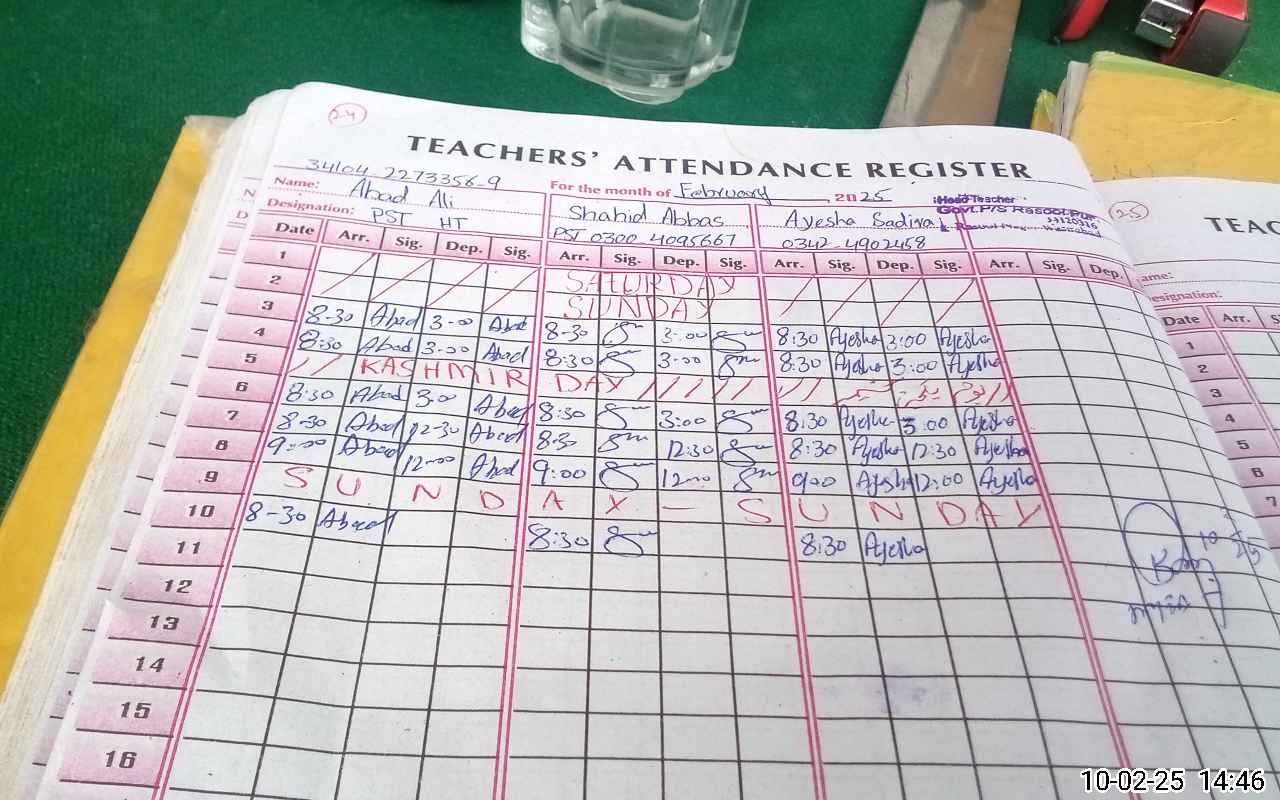 24
TEACHERS' ATTENDANCE REGISTER
34104-2273356-9
Name: Abad Ali For the month of February, 2025
Head Teacher
Designation: PST HT Shahid Abbas Ayesha Sadiqa
Govt. P/S Rasool Pur
PST 0300-4095667 0342-4902458
Date Arr. Sig. Dep. Sig. Arr. Sig. Dep. Sig. Arr. Sig. Dep. Sig. Arr. Sig. Dep.
1 SATURDAY
2 SUNDAY
3 8-30 Abad 3-00 Abad 8-30 3:00 8:30 Ayesha 3:00 Ayesha
4 8:30 Abad 3-00 Abad 8:30 3-00 8:30 Ayesha 3:00 Ayesha
5 KASHMIR DAY
6 8:30 Abad 3:00 Abad 8:30 3:00 8:30 Ayesha 3:00 Ayesha
7 8-30 Abad 12-30 Abad 8:30 12:30 8:30 Ayesha 12:30 Ayesha
8 9:00 Abad 12-00 Abad 9:00 12-00 9:00 Ayesha 12:00 Ayesha
9 SUNDAY - SUNDAY
10 8-30 Abad 8:30 8:30 Ayesha
11
12
13
14
15
16
25
TEAC
ame:
esignation:
Date Arr. S
1
2
3
4
5
6
7
10-02-25 14:46